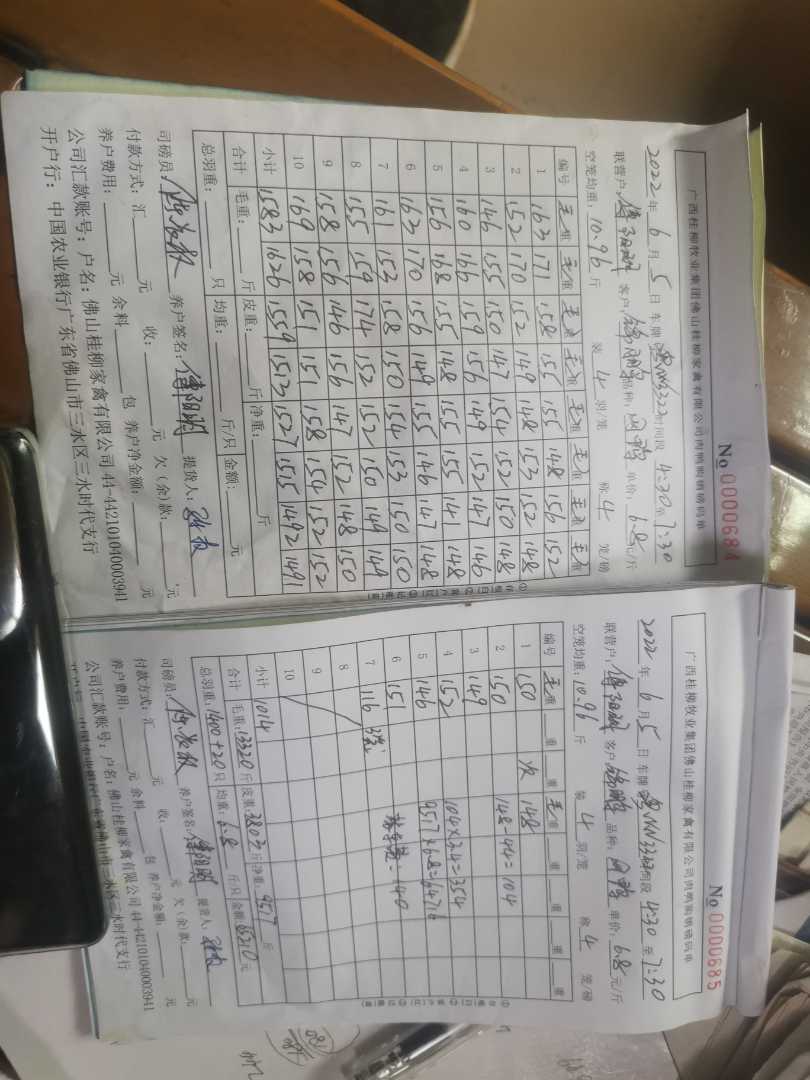 广西桂柳牧业集团佛山桂柳家禽有限公司肉鸭购销磅码单
No 0000684
2022年 6月 5日 车牌 时间段 4:30至7:30
联营户: 客户: 品种: 肉鸭 单价: 6.8元/斤
空笼均重: 10.96斤 装 4 羽/笼 称 4 笼/磅
编号 毛重 毛重 毛重 毛重 毛重 毛重 毛重 毛重
1 163 171 158 155 155 148 156 152
2 152 170 152 149 148 153 152 148
3 146 155 150 147 154 152 150 148
4 160 166 159 156 149 152 147 146
5 156 168 155 148 155 155 141 148
6 163 170 156 149 155 146 147 148
7 161 153 158 150 154 153 150 150
8 155 159 174 152 152 150 149 149
9 158 156 146 156 147 152 148 150
10 169 158 151 151 158 154 152 152
小计 1583 1626 1559 1513 1527 1515 1492 1491
合计 毛重: 斤 皮重: 斤 净重: 斤
总羽重: 只 均重: 斤/只 金额: 元
司磅员: 养户签名: 提货人:
付款方式: 汇 元 收: 元 欠(余)款: 元
养户费用: 元 余料 包 养户净金额: 元
公司汇款账号: 户名: 佛山桂柳家禽有限公司 44-442101040003941
开户行: 中国农业银行广东省佛山市三水区三水时代支行
广西桂柳牧业集团佛山桂柳家禽有限公司肉鸭购销磅码单
No 0000685
2022年 6月 5日 车牌 时间段 4:30至7:30
联营户: 客户: 品种: 肉鸭 单价: 6.8元/斤
空笼均重: 10.96斤 装 4 羽/笼 称 4 笼/磅
编号 毛重 重 重 毛重 重 重 重 重
1 150 欠 148
2 150 148-44=104
3 149
4 152 104×3.4=354
5 146 9517×6.8=64716
6 151 =140
7 116 3笼
8
9
10
小计 1014
合计 毛重: 13320斤 皮重: 3803斤 净重: 9517斤
总羽重: 1400+20只 均重: 6.8斤/只 金额: 65210元
司磅员: 养户签名: 提货人:
付款方式: 汇 元 收: 元 欠(余)款: 元
养户费用: 元 余料 包 养户净金额: 元
公司汇款账号: 户名: 佛山桂柳家禽有限公司 44-442101040003941